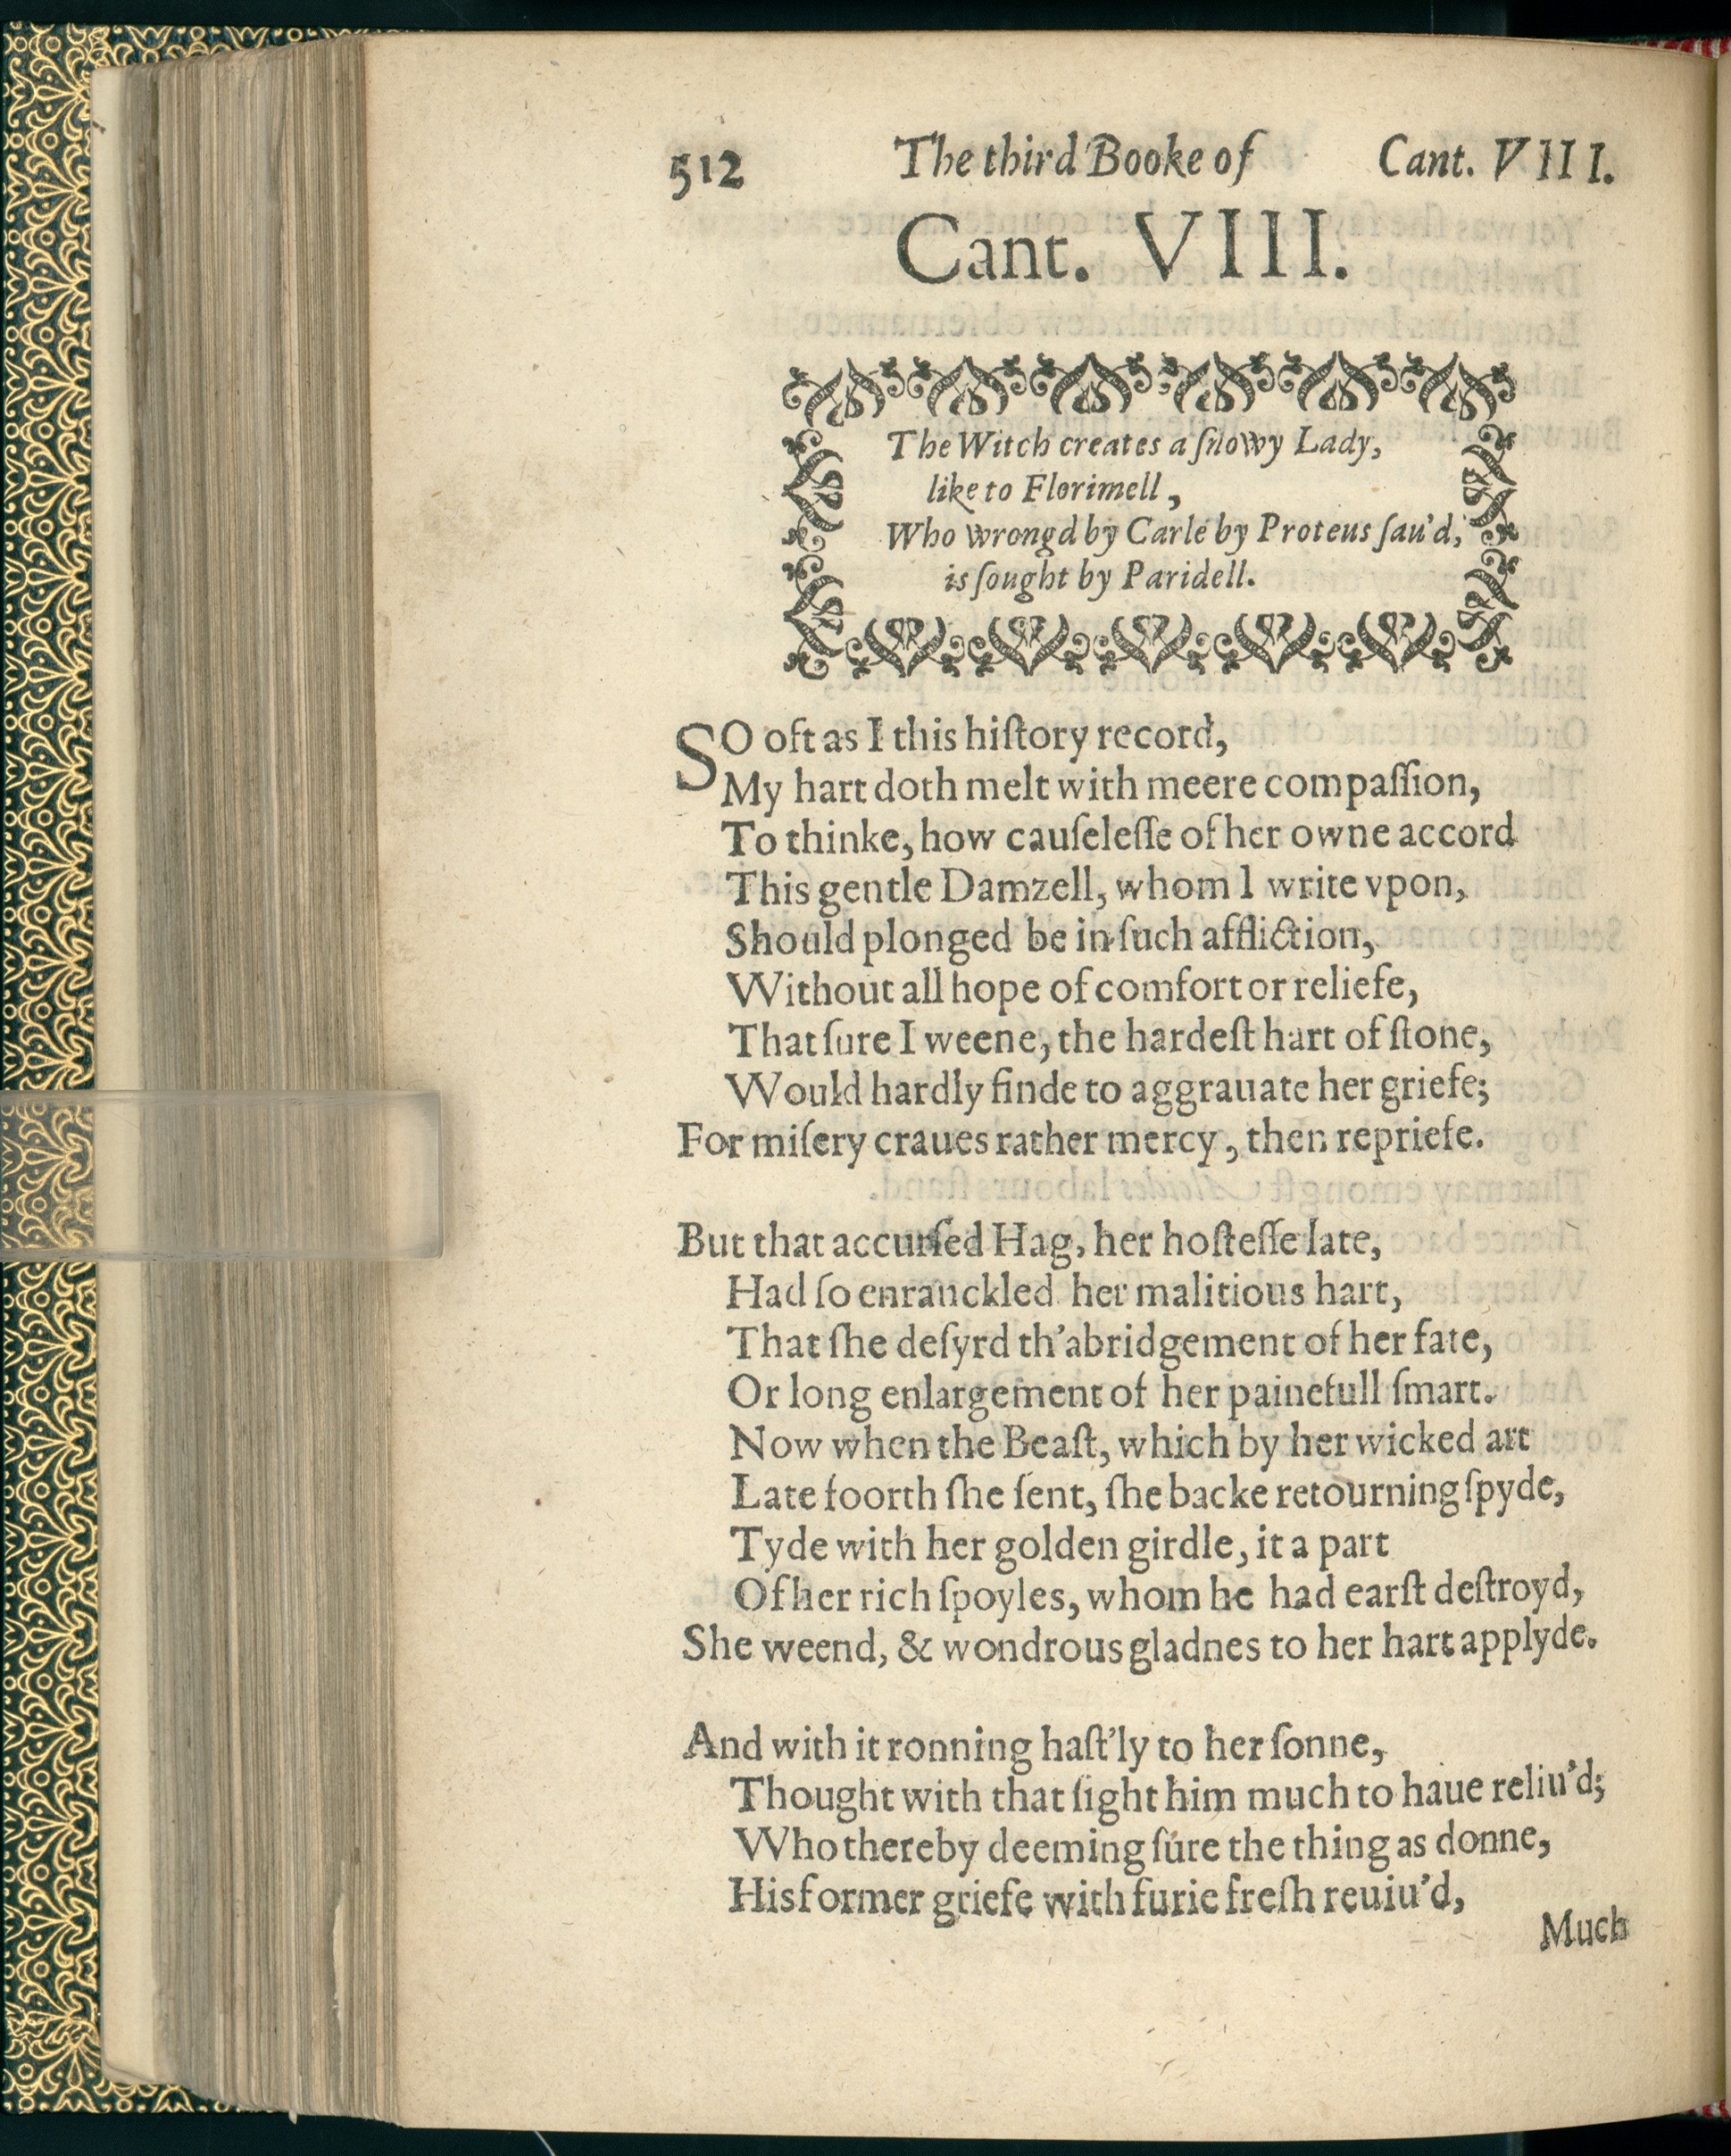 512 The third Booke of Cant. VIII.
Cant. VIII.
The Witch creates a ſnowy Lady,
like to Florimell,
Who wrongd by Carle by Proteus ſau'd,
is ſought by Paridell.
SO oft as I this hiſtory record,
My hart doth melt with meere compaſſion,
To thinke, how cauſeleſſe of her owne accord
This gentle Damzell, whom I write vpon,
Should plonged be in ſuch affliction,
Without all hope of comfort or reliefe,
That ſure I weene, the hardeſt hart of ſtone,
Would hardly finde to aggrauate her griefe;
For miſery craues rather mercy, then repriefe.
But that accurſed Hag, her hoſteſſe late,
Had ſo enranckled her malitious hart,
That ſhe deſyrd th'abridgement of her fate,
Or long enlargement of her painefull ſmart.
Now when the Beaſt, which by her wicked art
Late foorth ſhe ſent, ſhe backe retourning ſpyde,
Tyde with her golden girdle, it a part
Of her rich ſpoyles, whom he had earſt deſtroyd,
She weend, & wondrous gladnes to her hart applyde.
And with it ronning haſt'ly to her ſonne,
Thought with that ſight him much to haue reliu'd;
Who thereby deeming ſure the thing as donne,
His former griefe with furie freſh reuiu'd,
Much